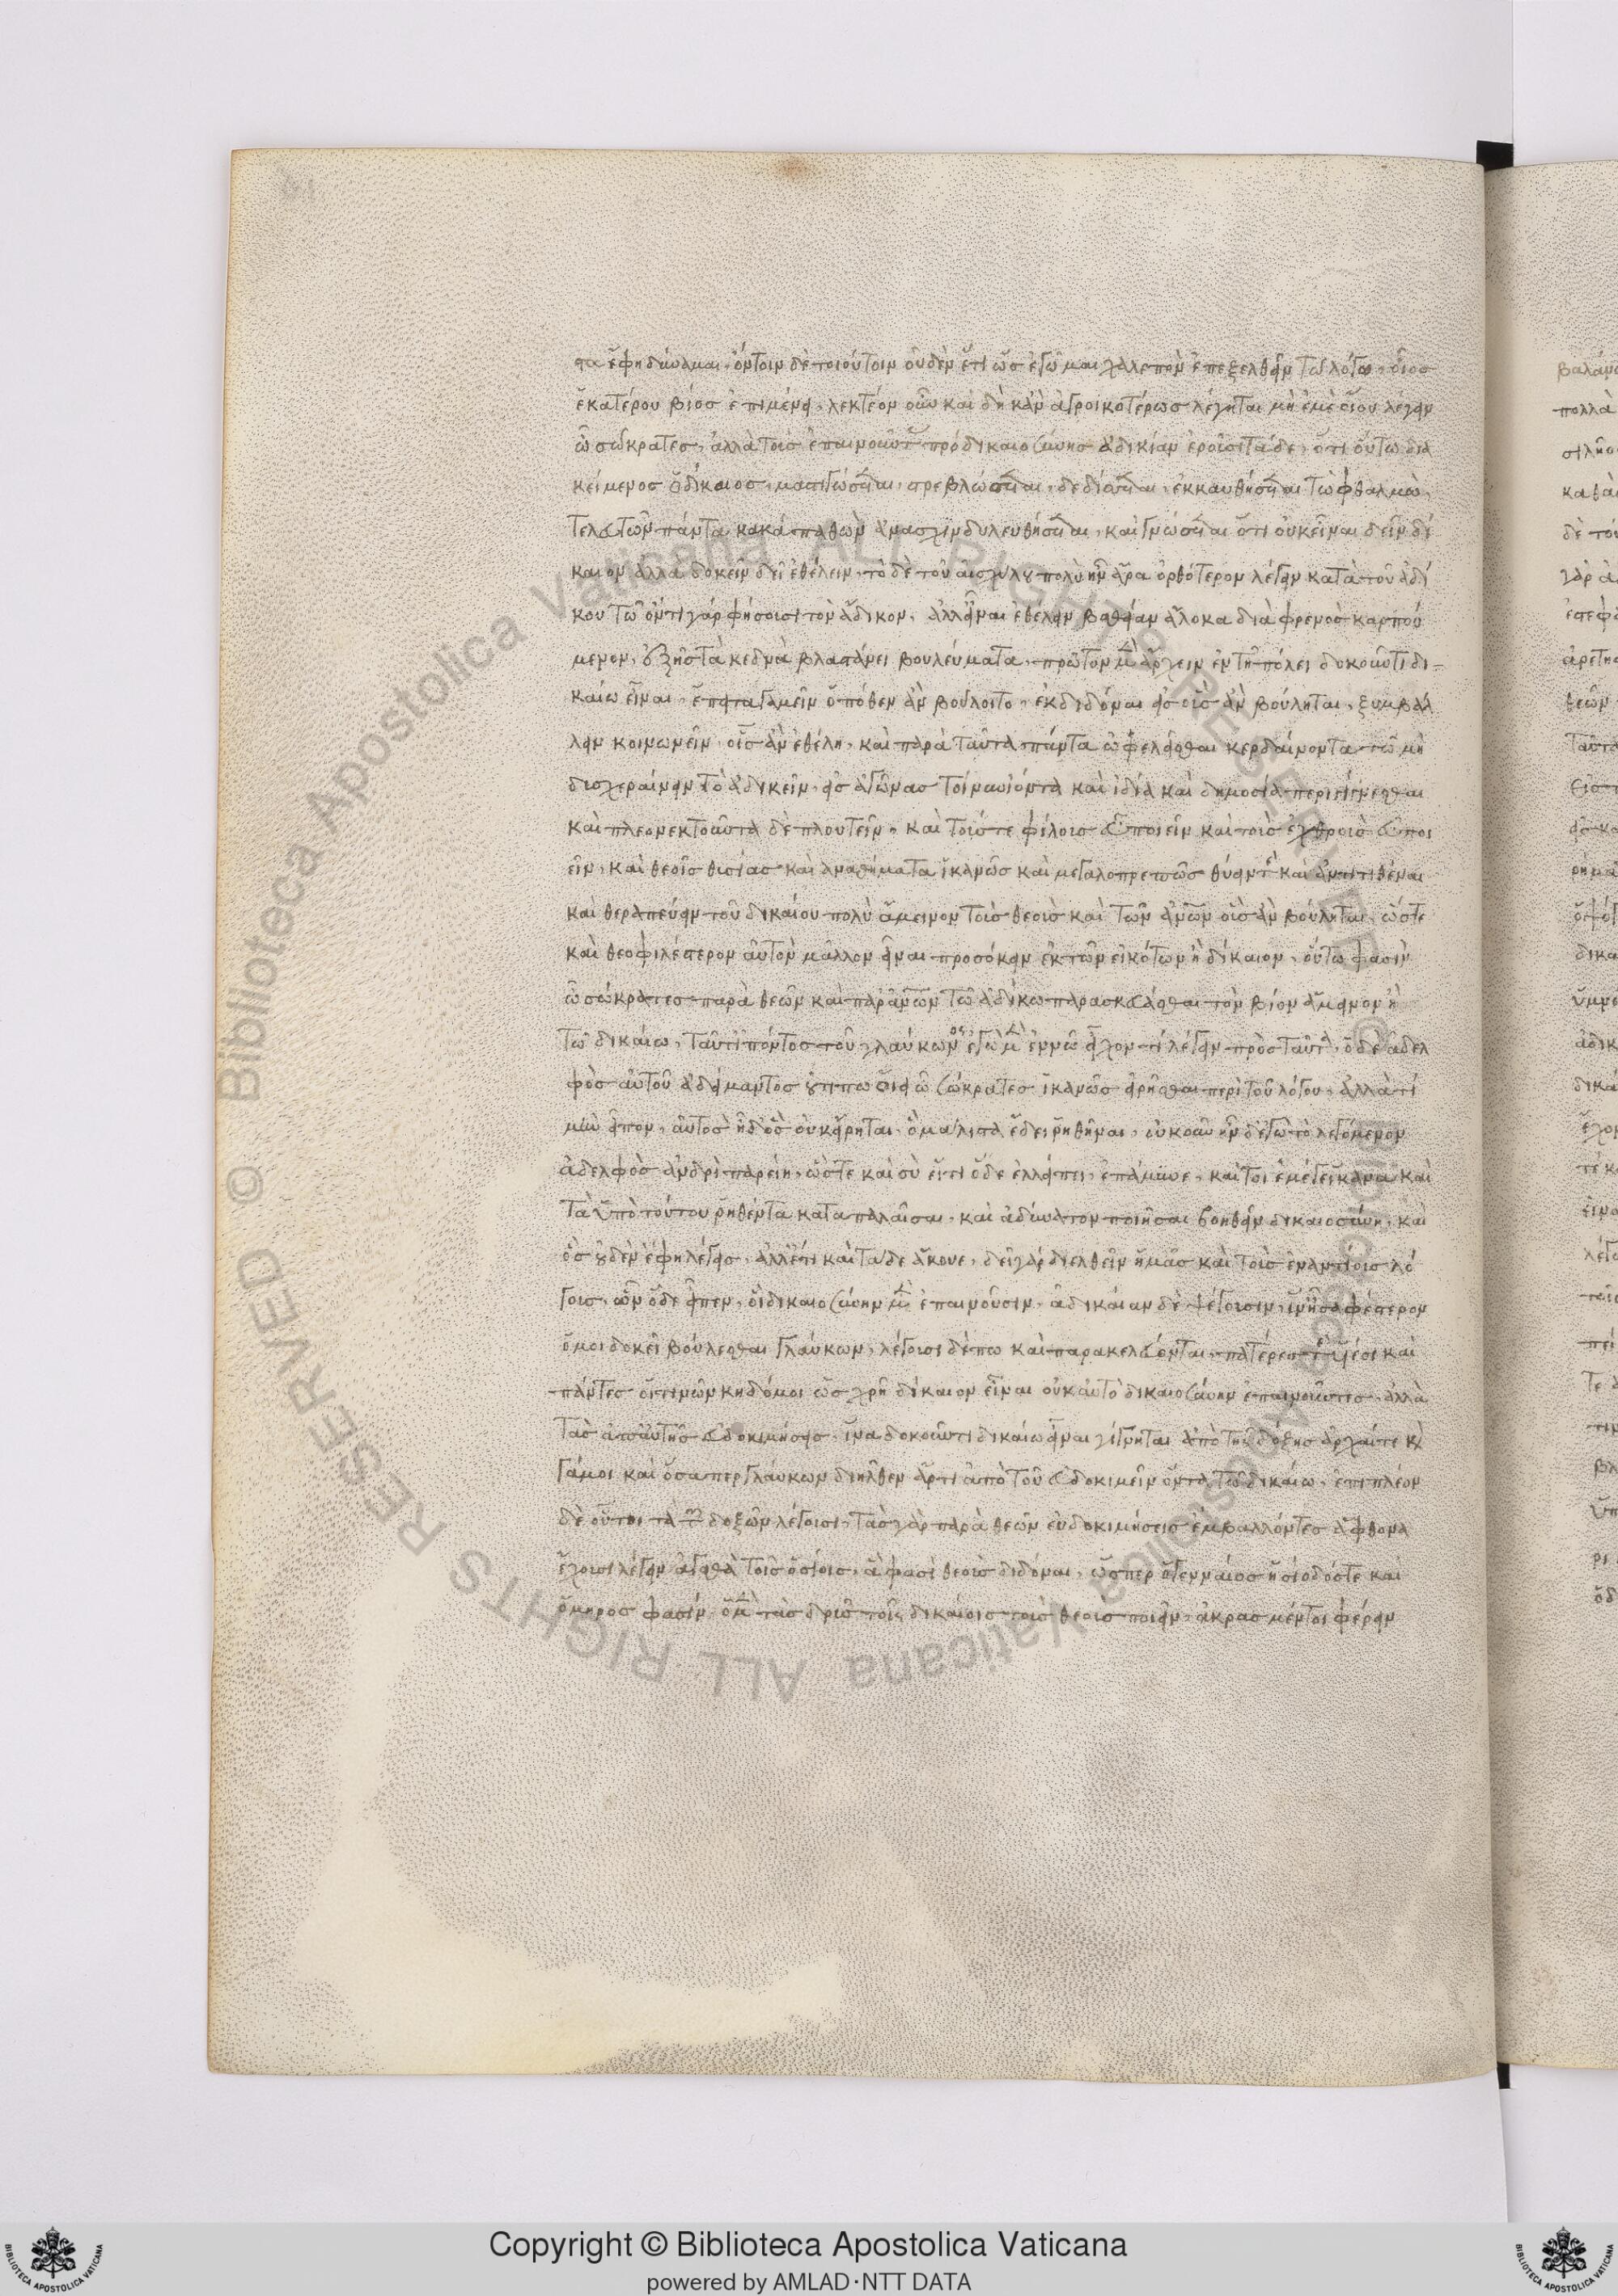 στα ἔφη δύναμαι. ὄντοιν δὲ τοιούτοιν οὐδὲν ἔτι ὡς ἐγὦμαι χαλεπὸν ἐπεξελθεῖν τῶ λόγω, οἷος
ἑκατέρου βίος ἐπιμένει. λεκτέον οὖν καὶ δὴ κἂν ἀγροικοτέρως λέγηται μὴ ἐμὲ οἴου λέγειν
ὦ σώκρατες, ἀλλὰ τοὺς ἐπαινοῦντας πρὸ δικαιοσύνης ἀδικίαν ἐροῦσι τάδε. ὅτι οὕτω δια
κείμενος ὁ δίκαιος μαστιγώσεται, στρεβλώσεται, δεδήσεται, ἐκκαυθήσεται τὼ φθαλμὼ.
τελευτῶν πάντα κακὰ παθὼν ἀνασχινδυλευθήσεται, καὶ γνώσεται ὅτι οὐκ εἶναι δεῖν δί
καιον ἀλλὰ δοκεῖν δεῖ ἐθέλειν. τὸ δὲ τοῦ αἰσχύλου πολὺ ἦν ἄρα ὀρθότερον λέγειν κατὰ τοῦ ἀδί
κου τῶ ὄντι γάρ φήσουσι τὸν ἄδικον. ἀλλ' εἶναι ἐθέλειν βαθεῖαν ἄλοκα διὰ φρενὸς καρπού
μενον, ἐξ ἧς τὰ κεδνὰ βλαστάνει βουλεύματα. πρῶτον μὲν ἄρχειν ἐν τῆ πόλει δοκοῦντι δι-
καίω εἶναι, ἔπειτα γαμεῖν ὁπόθεν ἂν βούλοιτο, ἐκδιδόναι εἰς οἷς ἂν βούληται, ξυμβάλ
λειν κοινωνεῖν οἷς ἂν ἐθέλη. καὶ παρὰ ταῦτα πάντα ὠφελεῖσθαι κερδαίνοντα τῶ μὴ
δυσχεραίνειν τὸ ἀδικεῖν. εἰς ἀγῶνας τοίνυν ἰόντα καὶ ἰδία καὶ δημοσία περιγίγνεσθαι
καὶ πλεονεκτοῦντα δὲ πλουτεῖν. καὶ τούς τε φίλους εὖ ποιεῖν καὶ τοὺς ἐχθροὺς εὖ ποι
εῖν, καὶ θεοῖς θυσίας καὶ ἀναθήματα ἱκανῶς καὶ μεγαλοπρεπῶς θύειν τε καὶ ἀνατιθέναι
καὶ θεραπεύειν τοῦ δικαίου πολὺ ἄμεινον τοὺς θεοὺς καὶ τῶν ἀνων οἷς ἂν βούληται, ὥστε
καὶ θεοφιλέστερον αὐτὸν μᾶλλον εἶναι προσήκειν ἐκ τῶν εἰκότων ἢ δίκαιον. οὕτω φασὶν
ὦ σώκρατες παρὰ θεῶν καὶ παρ' ἀνων τῶ ἀδίκω παρασκευάσθαι τὸν βίον ἄμεινον ἢ
τῶ δικαίω. ταῦτ' εἰπόντος τοῦ γλαύκωνος ἐγὼ μὲν ἐν νῶ εἶχον τί λέγειν πρὸς ταῦτα. ὁ δὲ ἀδελ
φὸς αὐτοῦ ἀδείμαντος οὔ τί πω οἴει ὦ σώκρατες ἱκανῶς εἰρῆσθαι περὶ τοῦ λόγου, ἀλλὰ τί
μὴν εἶπον. αὐτὸς ἦ δ' ὃς οὐκ εἴρηται. ὃ μάλιστα ἔδει ῥηθῆναι. οὐκοῦν ἦν δ' ἐγὼ τὸ λεγόμενον
ἀδελφὸς ἀνδρὶ παρείη. ὥστε καὶ σὺ εἴ τι ὅδε ἐλλείπει, ἐπάμυνε. καίτοι ἐμέ γε ἱκανὰ καὶ
τὰ ὑπὸ τούτου ῥηθέντα καταπαλαῖσαι. καὶ ἀδύνατον ποιῆσαι βοηθεῖν δικαιοσύνη. καὶ
ὃς οὐδὲν ἔφη λέγεις. ἀλλ' ἔτι καὶ τάδε ἄκουε. δεῖ γὰρ διελθεῖν ἡμᾶς καὶ τοὺς ἐναντίους λό
γους, ὧν ὅδε εἶπεν. οἳ δικαιοσύνην μὲν ἐπαινοῦσιν. ἀδικίαν δὲ ψέγουσιν. ἵν' ἦ σαφέστερον
ὅ μοι δοκεῖ βούλεσθαι γλαύκων, λέγουσι δέ που καὶ παρακελεύονται πατέρες τε ὑέσι καὶ
πάντες οἵ τινῶν κηδόμενοι ὡς χρὴ δίκαιον εἶναι οὐκ αὐτὸ δικαιοσύνην ἐπαινοῦντες. ἀλλὰ
τὰς ἀπ' αὐτῆς εὐδοκιμήσεις. ἵνα δοκοῦντι δικαίω εἶναι γίγνηται ἀπὸ τῆς δόξης ἀρχαί τε καὶ
γάμοι καὶ ὅσαπερ γλαύκων διῆλθεν ἄρτι ἀπὸ τοῦ εὐδοκιμεῖν ὄντα τῶ δικαίω. ἐπὶ πλέον
δὲ οὗτοι τὰ τῶν δοξῶν λέγουσι. τὰς γὰρ παρὰ θεῶν εὐδοκιμήσεις ἐμβαλλόντες ἄφθονα
ἔχουσι λέγειν ἀγαθὰ τοῖς ὁσίοις. ἅ φασι θεοὺς διδόναι. ὥσπερ ὁ γενναῖος ἡσίοδός τε καὶ
ὅμηρός φασιν. ὁ μὲν τὰς δρῦς τοῖς δικαίοις τοὺς θεοὺς ποιεῖν. ἄκρας μέν τοι φέρειν